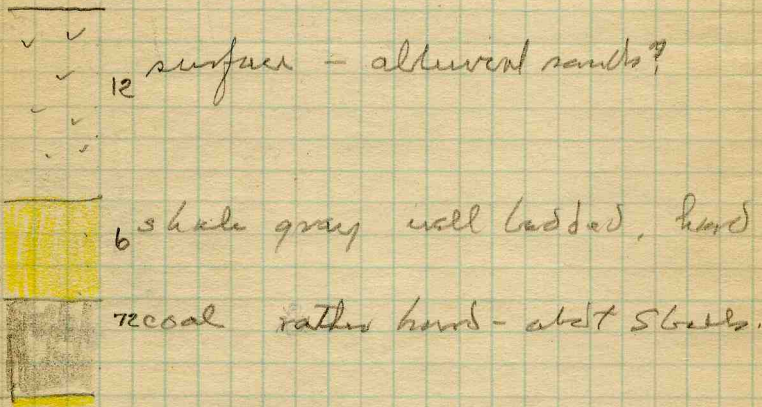 12 surface - alluvial sands?
6 shale gray well bedded, hard
72 coal rather hard - abot 5